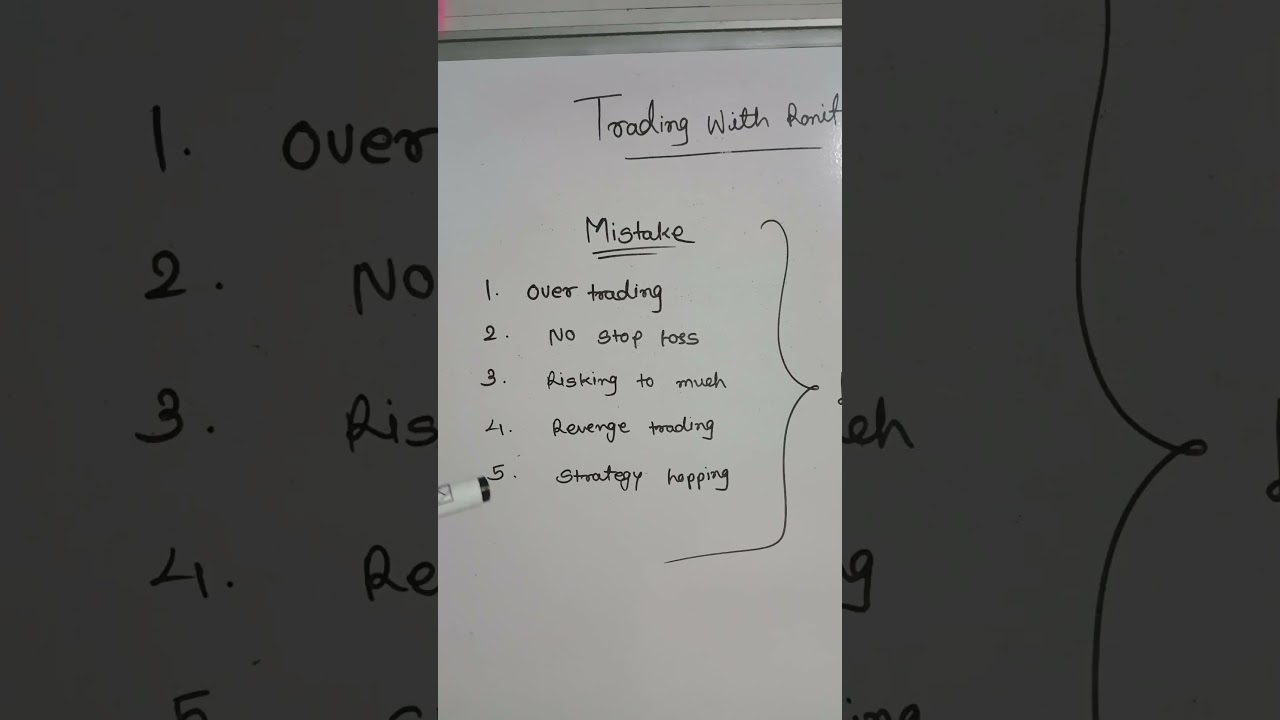 Trading With Ronit
Mistake
1. Over trading
2. No Stop loss
3. Risking to much
4. Revenge trading
5. Strategy hopping